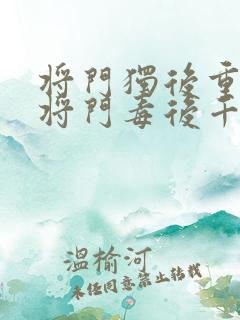 將門獨後重
將門毒後千
溫榆河
未经同意禁止转载